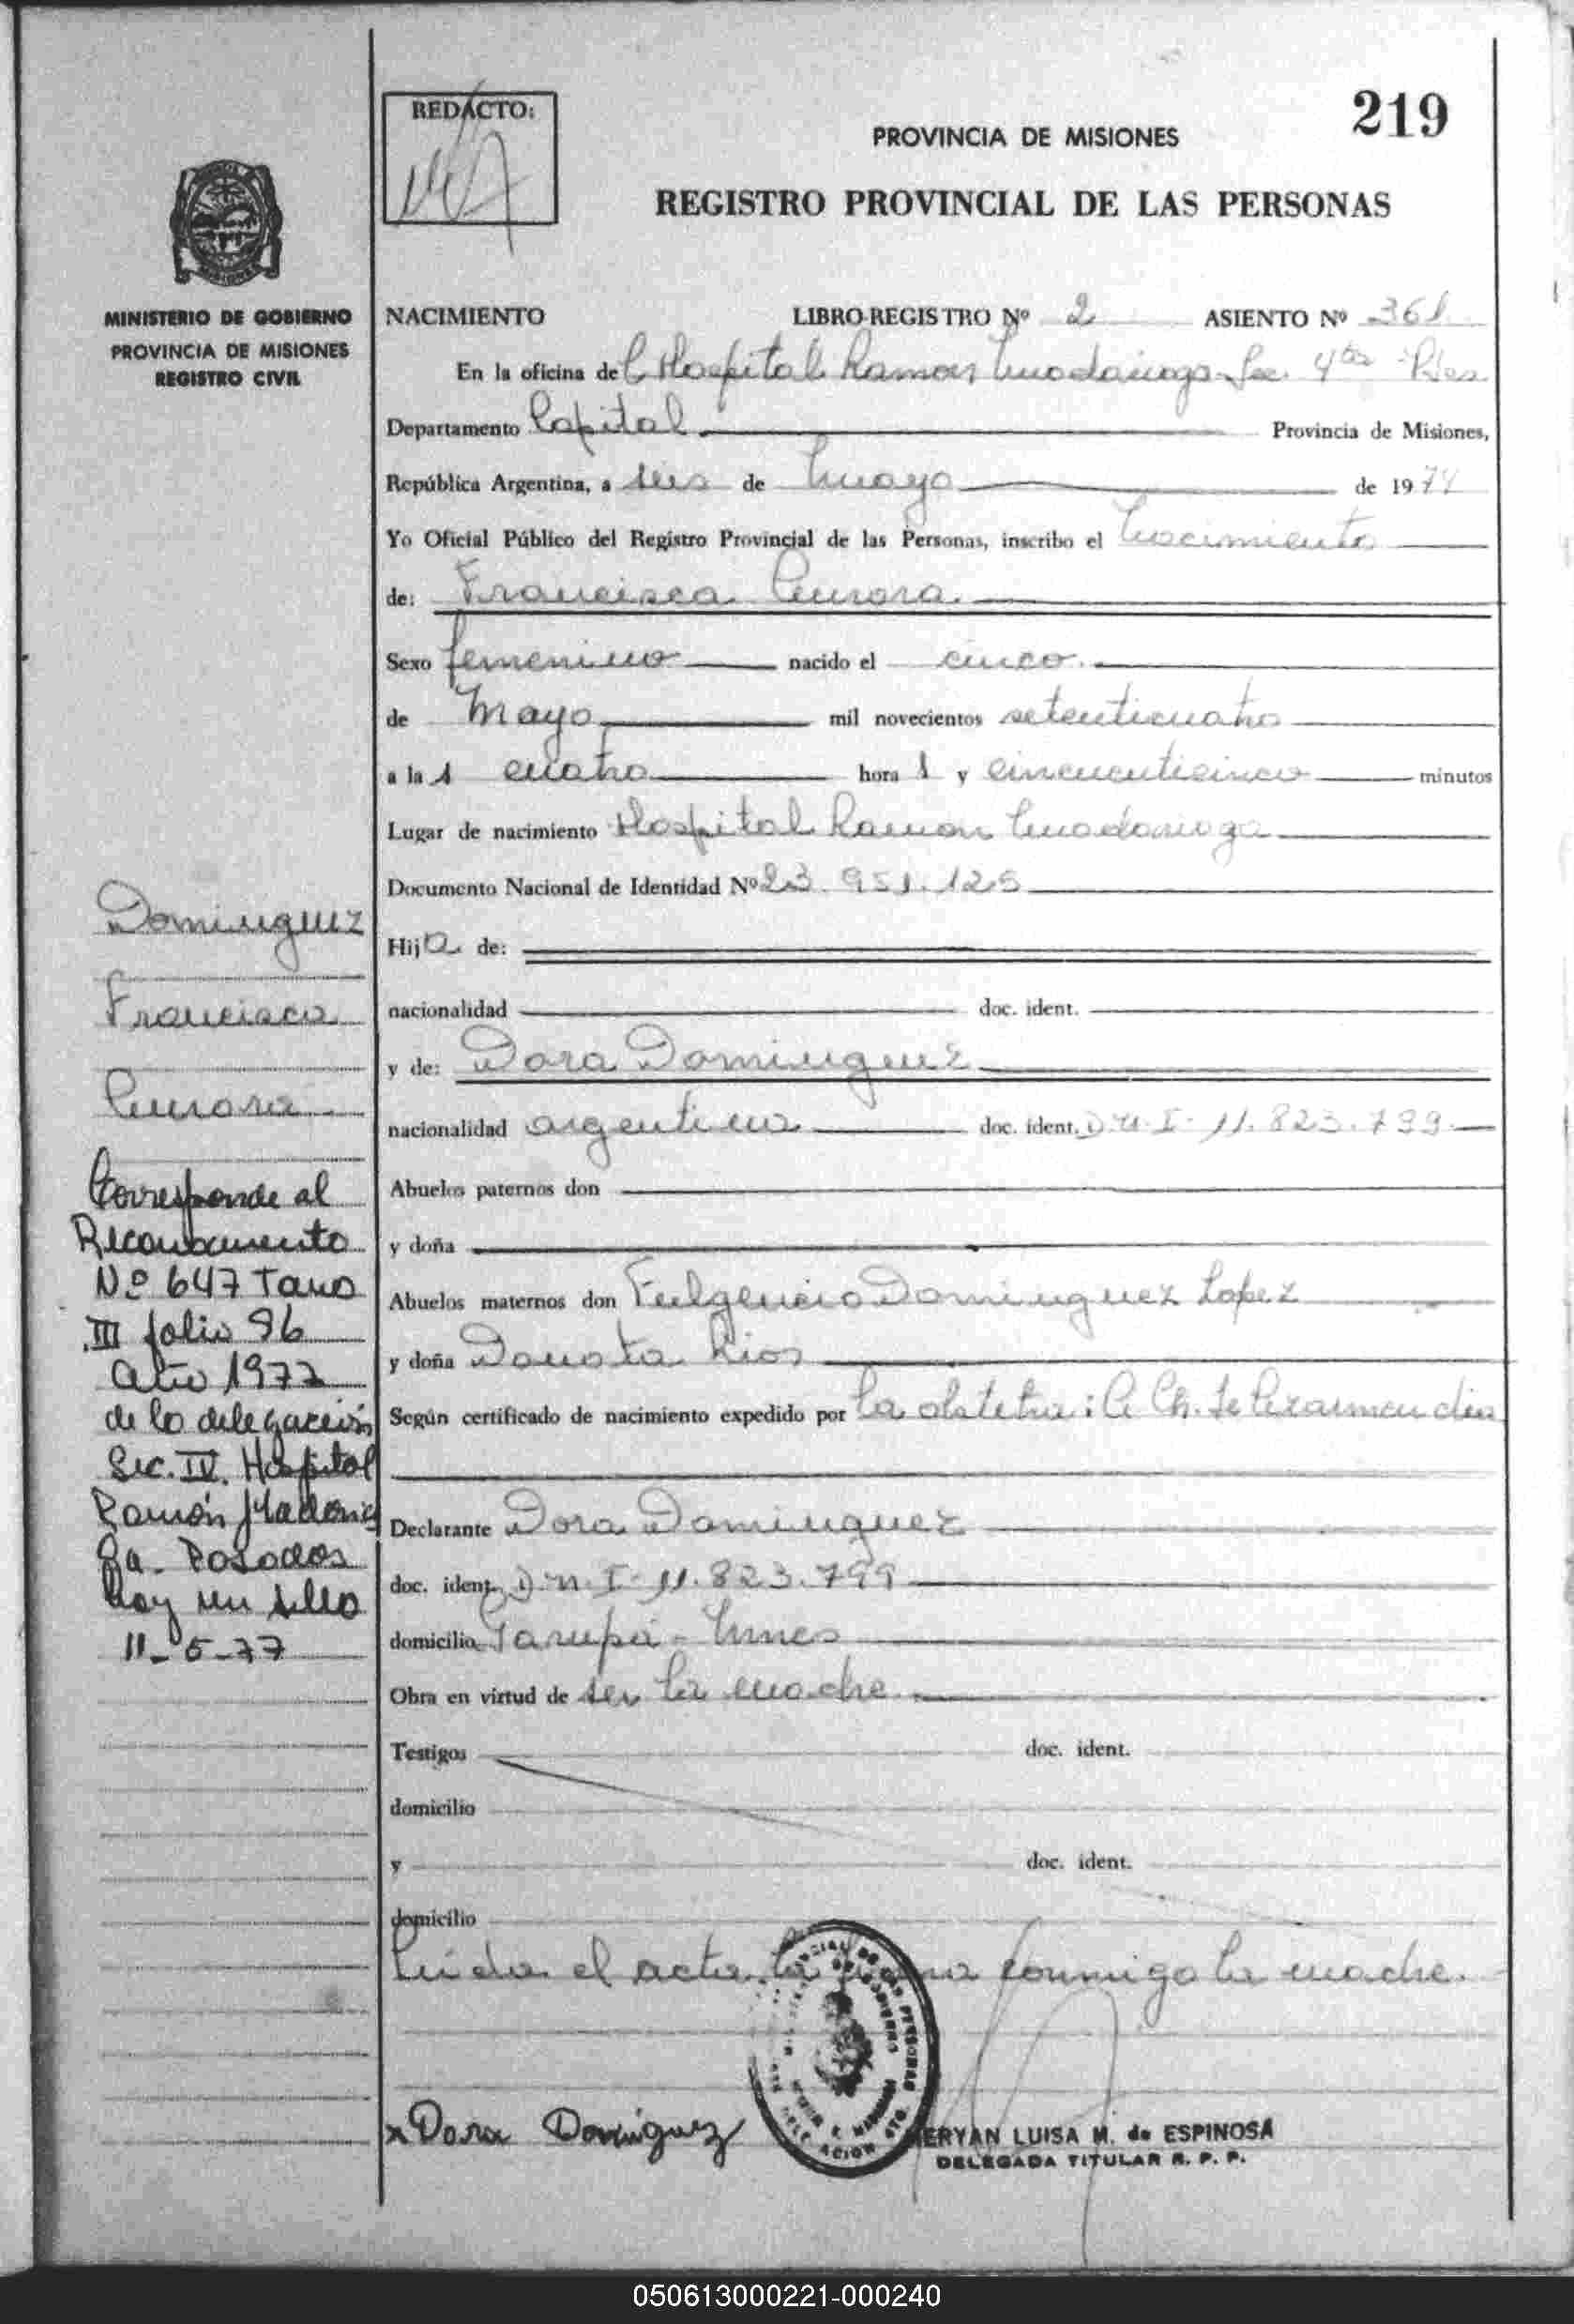 219
REDACTO:
PROVINCIA DE MISIONES
REGISTRO PROVINCIAL DE LAS PERSONAS
MINISTERIO DE GOBIERNO
PROVINCIA DE MISIONES
REGISTRO CIVIL
NACIMIENTO LIBRO REGISTRO Nº 2 ASIENTO Nº 361
En la oficina del Hospital Ramon Madariaga Sec. 4ta
Departamento Capital Provincia de Misiones,
República Argentina, a seis de mayo de 1974
Yo Oficial Público del Registro Provincial de las Personas, inscribo el nacimiento
de: Francisca Aurora
Sexo femenino nacido el cinco
de Mayo mil novecientos setenticuatro
a las cuatro horas y cincuenticinco minutos
Lugar de nacimiento Hospital Ramon Madariaga
Documento Nacional de Identidad Nº 23.951.125
Hija de:
nacionalidad doc. ident.
y de: Dora Dominguez
nacionalidad argentina doc. ident. D.N.I. 11.823.799
Abuelos paternos don
y doña
Abuelos maternos don Fulgencio Dominguez Lopez
y doña Donata Rios
Según certificado de nacimiento expedido por la obstetra: A. Ch. de
Declarante Dora Dominguez
doc. ident. D.N.I. 11.823.799
domicilio Garupá - Mnes
Obra en virtud de ser la madre
Testigos doc. ident.
domicilio
y doc. ident.
domicilio
Leida el acta la firma conmigo la madre.
x Dora Dominguez
MERYAN LUISA M. de ESPINOSA
DELEGADA TITULAR R. P. P.
Dominguez
Francisca
Aurora
Corresponde al
Reconocimiento
Nº 647 Tomo
III folio 96
año 1977
de la delegación
Sec. IV. Hospital
Ramón Madaria
ga. Posadas
Hay un sello
11-5-77
050613000221-000240